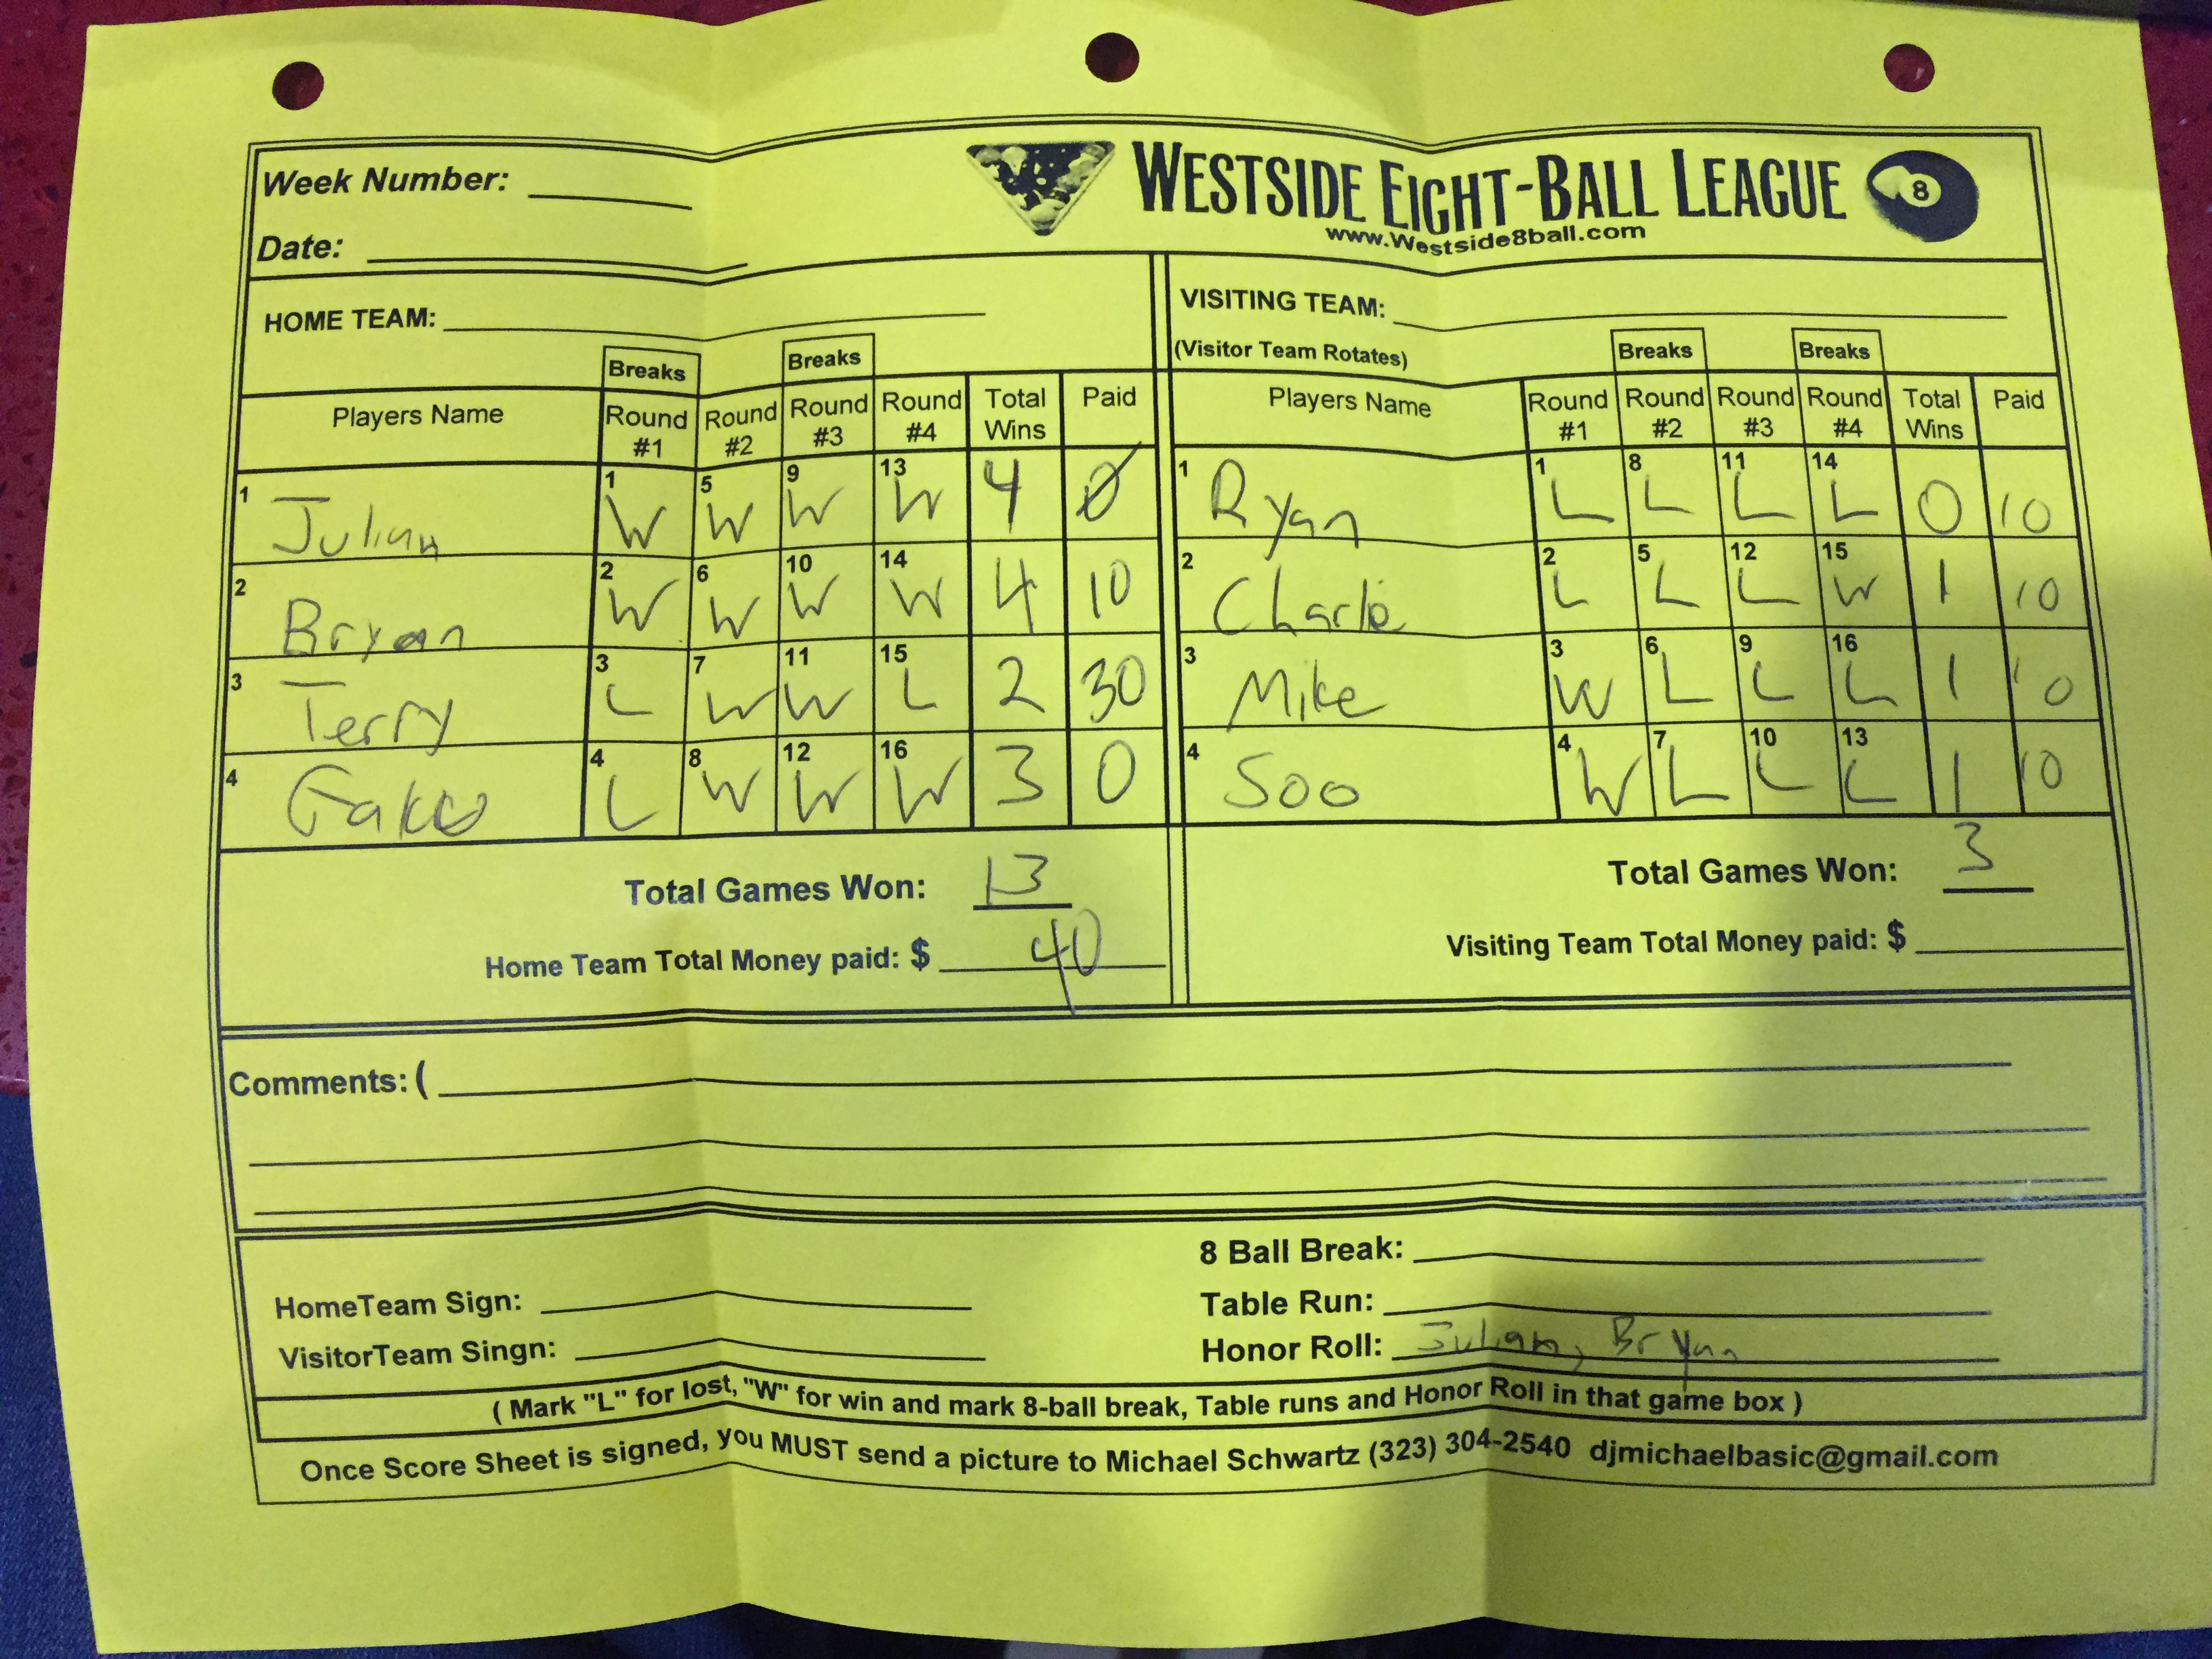 Week Number:
WESTSIDE EIGHT-BALL LEAGUE 8
www.Westside8ball.com
Date:
HOME TEAM:
VISITING TEAM:
(Visitor Team Rotates)
Breaks Breaks Breaks Breaks
Players Name Round #1 Round #2 Round #3 Round #4 Total Wins Paid Players Name Round #1 Round #2 Round #3 Round #4 Total Wins Paid
1 Julian 1 W 5 W 9 W 13 W 4 0 1 Ryan 1 L 8 L 11 L 14 L 0 10
2 Bryan 2 W 6 W 10 W 14 W 4 10 2 Charlie 2 L 5 L 12 L 15 W 1 10
3 Terry 3 L 7 W 11 W 15 L 2 30 3 Mike 3 W 6 L 9 L 16 L 1 10
4 4 L 8 W 12 W 16 W 3 0 4 Soo 4 W 7 L 10 L 13 L 1 10
Total Games Won: 13 Total Games Won: 3
Home Team Total Money paid: $ 40 Visiting Team Total Money paid: $
Comments: (
8 Ball Break:
HomeTeam Sign: Table Run:
VisitorTeam Singn: Honor Roll: Julian, Bryan
( Mark "L" for lost, "W" for win and mark 8-ball break, Table runs and Honor Roll in that game box )
Once Score Sheet is signed, you MUST send a picture to Michael Schwartz (323) 304-2540 djmichaelbasic@gmail.com